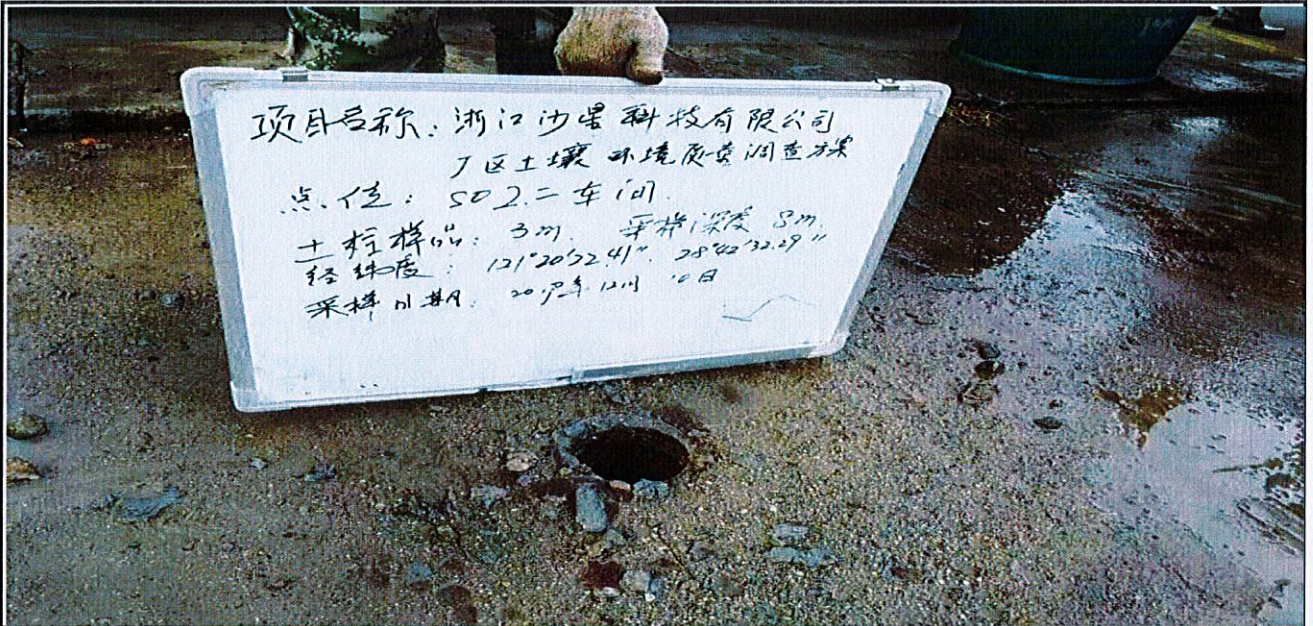 项目名称：浙江沙星科技有限公司
厂区土壤环境质量调查方案
点位：S02.二车间.
土柱样品：3m. 采样深度 3m.
经纬度：121°20'22.41". 28°42'32.29"
采样日期：2019年12月10日